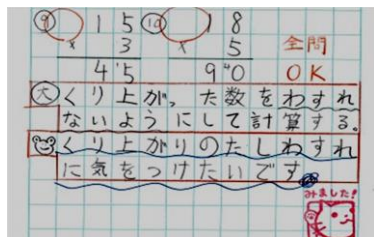 ⑨ 15 ⑩ 18
× 3 × 5
45 90
全問
OK
大 くり上がった数をわすれ
ないようにして計算する。
くり上がりのたしわすれ
に気をつけたいです
みました!